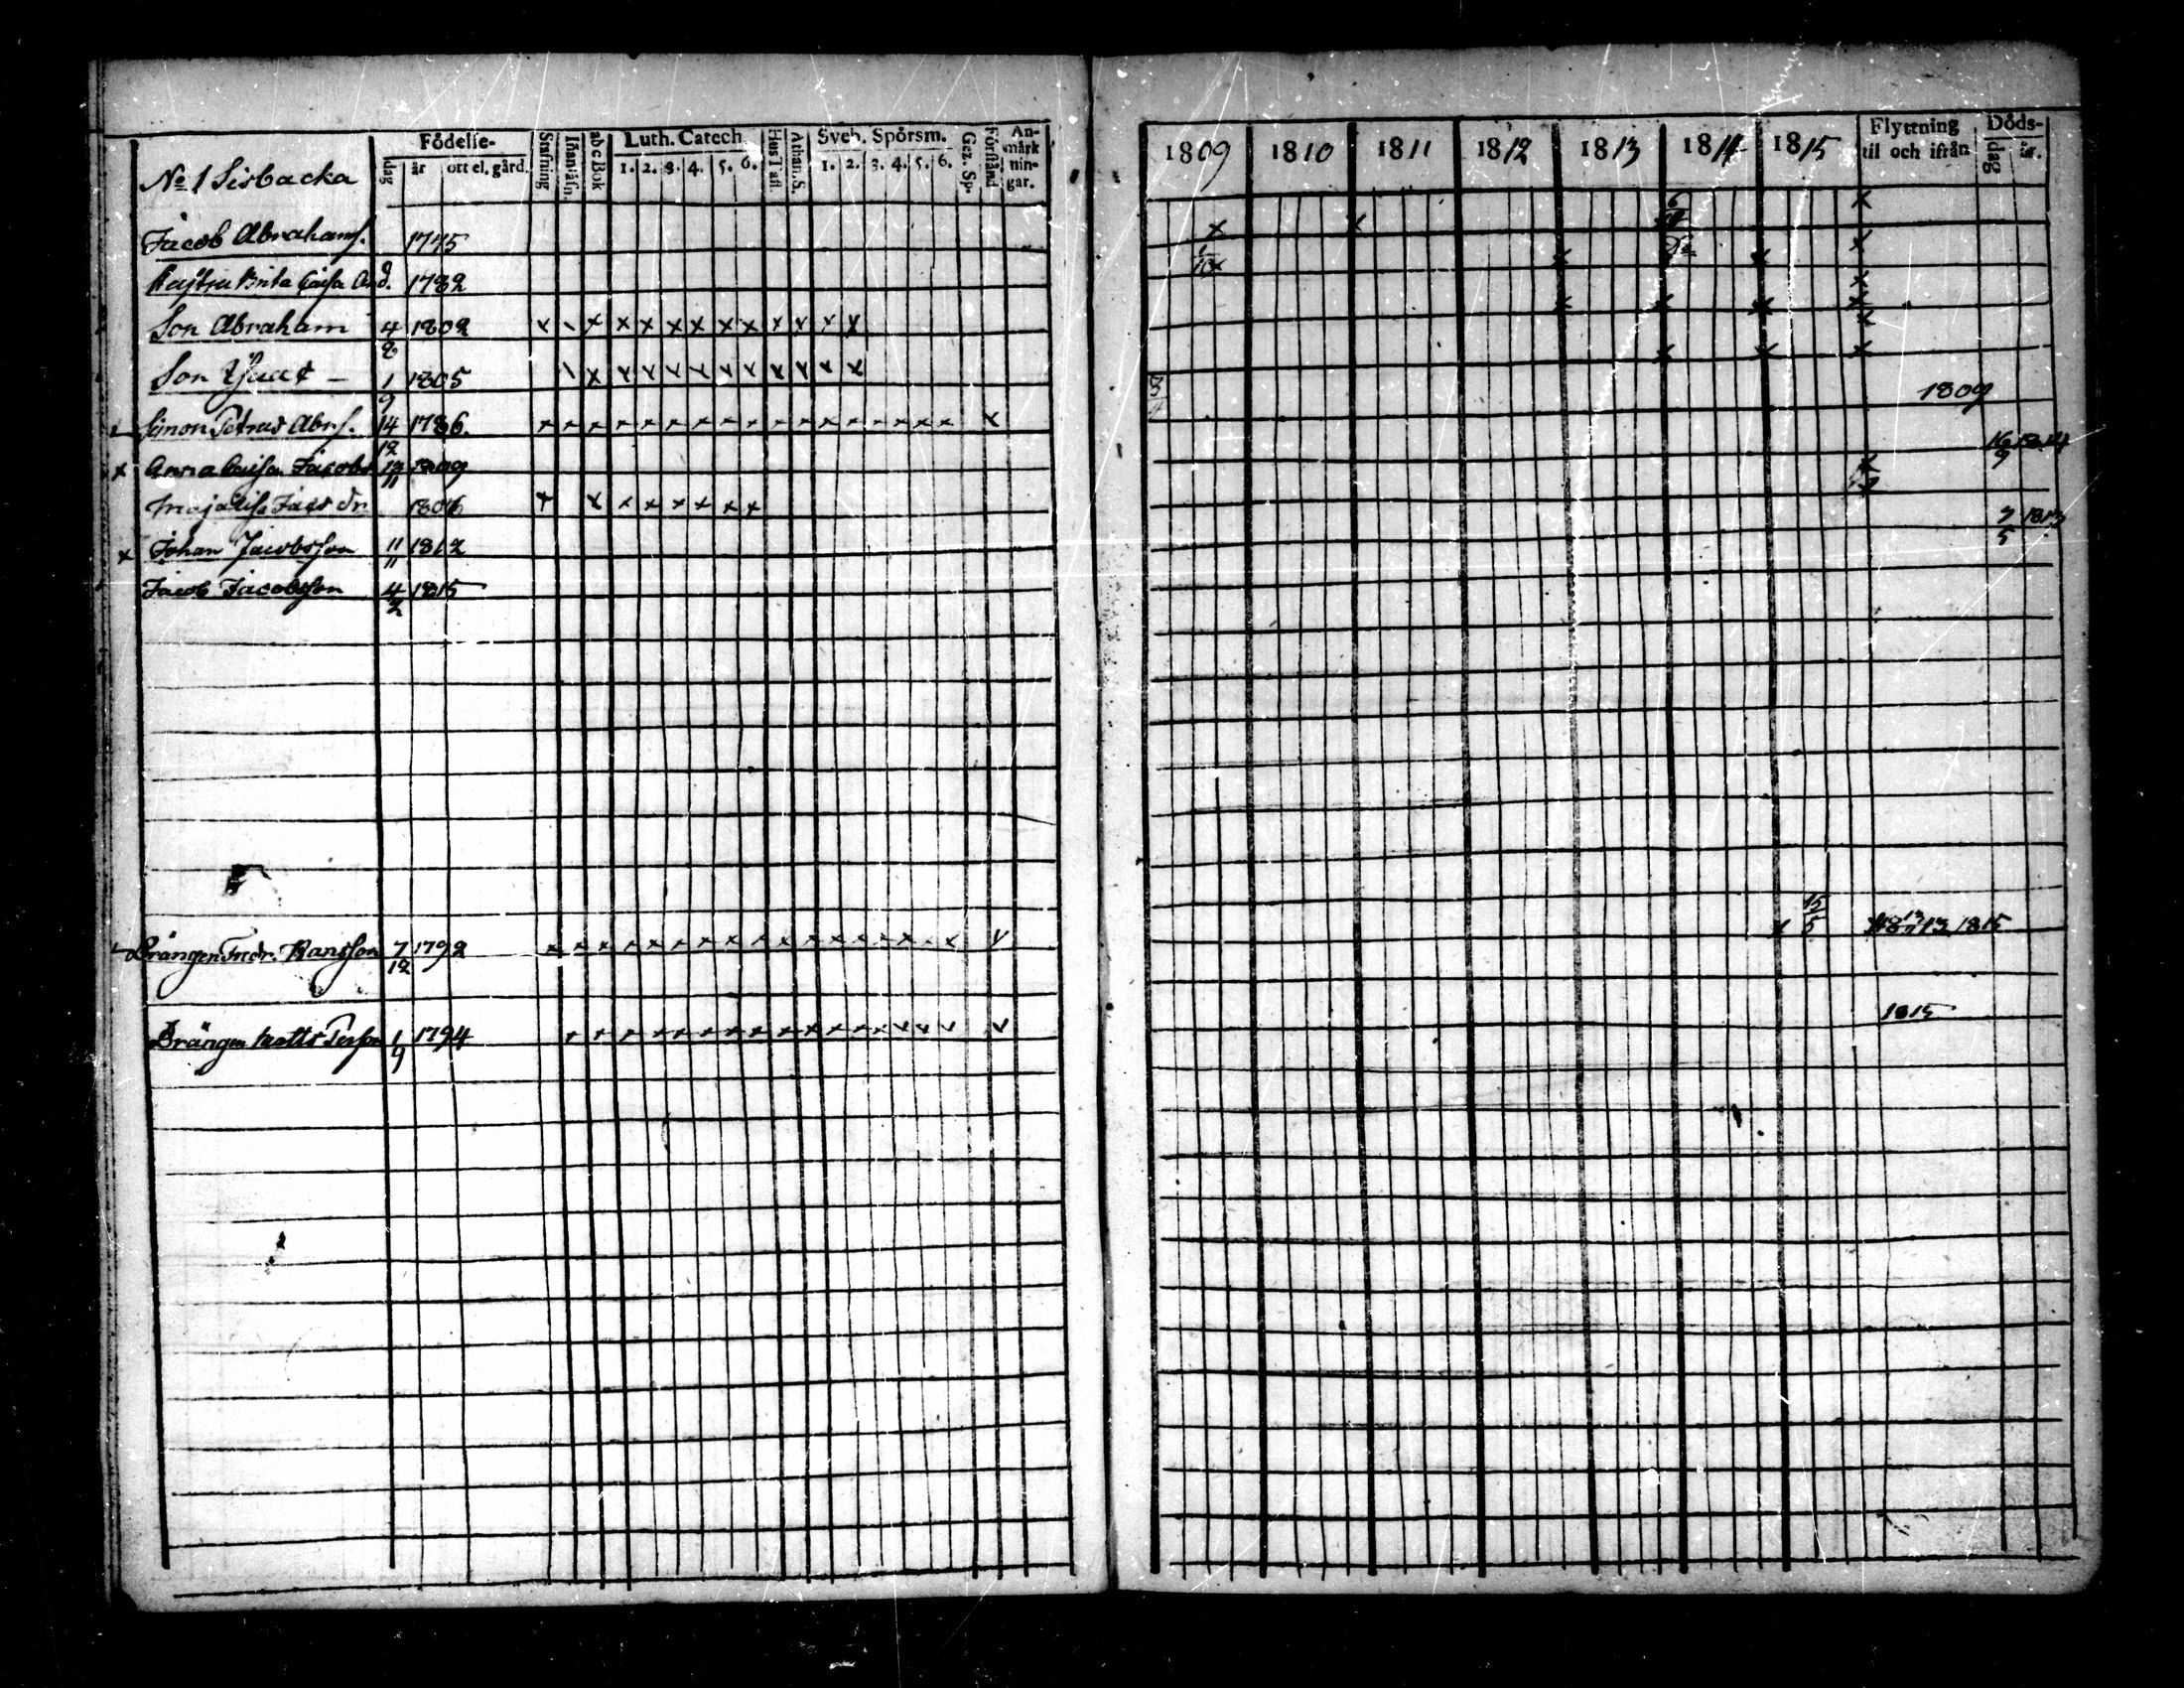 No 1 Sisbacka
Födelse-
dag år ort el. gård.
Stafning
Innanläsn.
abc Bok
Luth. Catech.
1. 2. 3. 4. 5. 6.
Hus Tafl.
Athan. S.
Sveb. Spörsm.
1. 2. 3. 4. 5. 6.
Gez. Sp.
Förstånd
An-
märk
nin-
gar.
1809 1810 1811 1812 1813 1814 1815
Flyttning
til och ifrån
Döds-
dag år.
Jacob Abrahams. 1775 x x 6 x
Brita Caisa And. 1782 x x x
Son Abraham 4/2 1802 x x x x x x x x x x x x x x x x x
Son 1/9 1805 x x x x x x x x x x x x x x x
Simon Petrus Abrs. 14/12 1786. x x x x x x x x x x x x x x x x x x 1809
x Anna Caisa Jacobs 1809 16/9 1814
Maja Lisa Jacs dr 1806 x x x x x x x x
x Johan Jacobsson 11/11 1812 7/5 1813
Jacob Jacobsson 4/2 1815
Drängen Fredr. Hansson 7/12 1792 x x x x x x x x x x x x x x x x x x 15/5 1815
Drängen Matts Persson 1/9 1794 x x x x x x x x x x x x x x x x x 1815